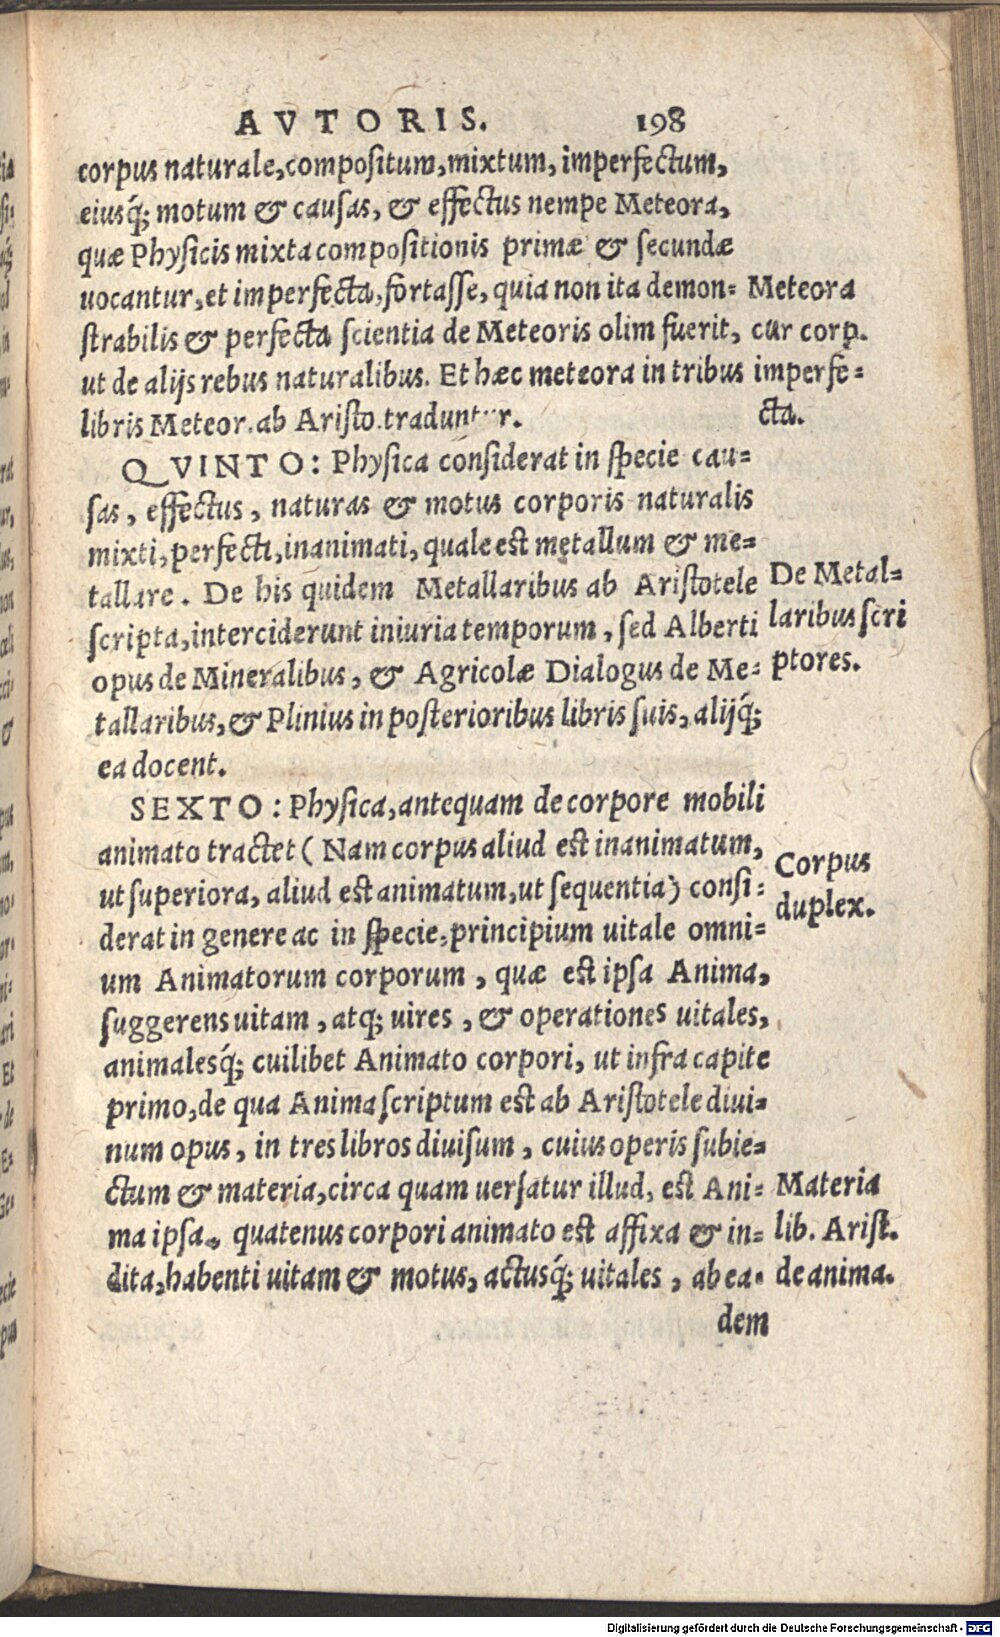 AVTORIS. 198
corpus naturale, compositum, mixtum, imperfectum,
eiusq́; motum & causas, & effectus nempe Meteora,
quæ Physicis mixta compositionis primæ & secundæ
uocantur, et imperfecta, fortasse, quia non ita demon=
strabilis & perfecta scientia de Meteoris olim fuerit,
ut de alijs rebus naturalibus. Et hæc meteora in tribus
libris Meteor. ab Aristo. traduntur.
Meteora
cur corp.
imperfe=
cta.
QVINTO: Physica considerat in specie cau=
sas, effectus, naturas & motus corporis naturalis
mixti, perfecti, inanimati, quale est metallum & me=
tallare. De his quidem Metallaribus ab Aristotele
scripta, interciderunt iniuria temporum, sed Alberti
opus de Mineralibus, & Agricolæ Dialogus de Me=
tallaribus, & Plinius in posterioribus libris suis, alijq́;
ea docent.
De Metal=
laribus scri
ptores.
SEXTO: Physica, antequam de corpore mobili
animato tractet (Nam corpus aliud est inanimatum,
ut superiora, aliud est animatum, ut sequentia) consi=
derat in genere ac in specie, principium uitale omni=
um Animatorum corporum, quæ est ipsa Anima,
suggerens uitam, atq; uires, & operationes uitales,
animalesq́; cuilibet Animato corpori, ut infra capite
primo, de qua Anima scriptum est ab Aristotele diui=
num opus, in tres libros diuisum, cuius operis subie=
ctum & materia, circa quam uersatur illud, est Ani=
ma ipsa, quatenus corpori animato est affixa & in=
dita, habenti uitam & motus, actusq́; uitales, ab ea=
Corpus
duplex.
Materia
lib. Arist.
de anima.
dem
Digitalisierung gefördert durch die Deutsche Forschungsgemeinschaft - DFG